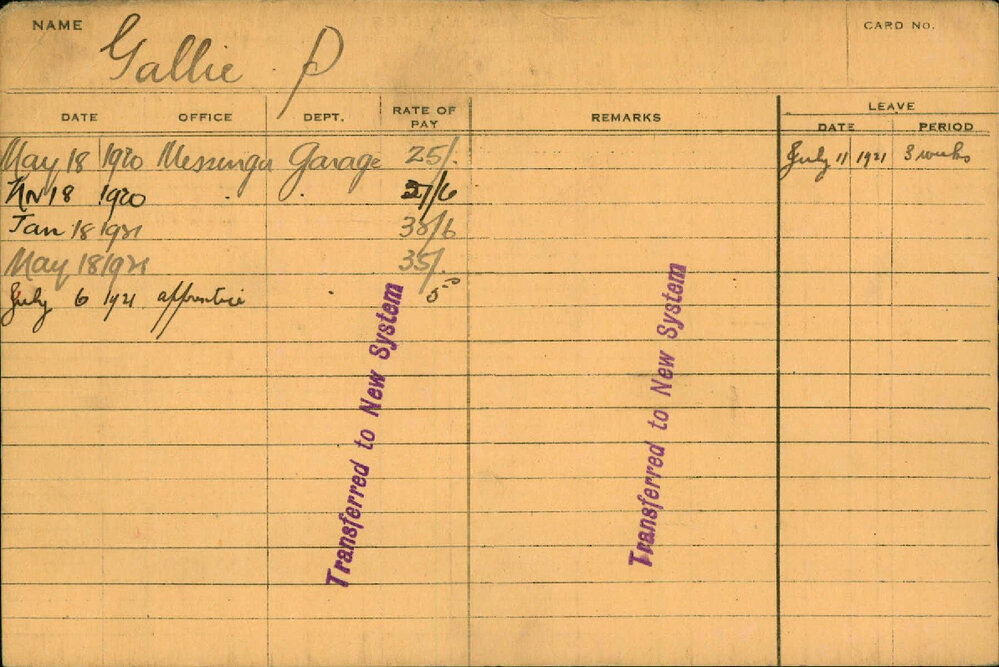 NAME Gallie P CARD No.
DATE OFFICE DEPT. RATE OF PAY REMARKS LEAVE
DATE PERIOD
May 18 1920 Messenger Garage 25/- July 11 1921 3 weeks
Nov 18 1920 " " 27/6
Jan 18 1921 /6
May 18 1921 35/-
July 6 1921 apprentice "
Transferred to New System
Transferred to New System